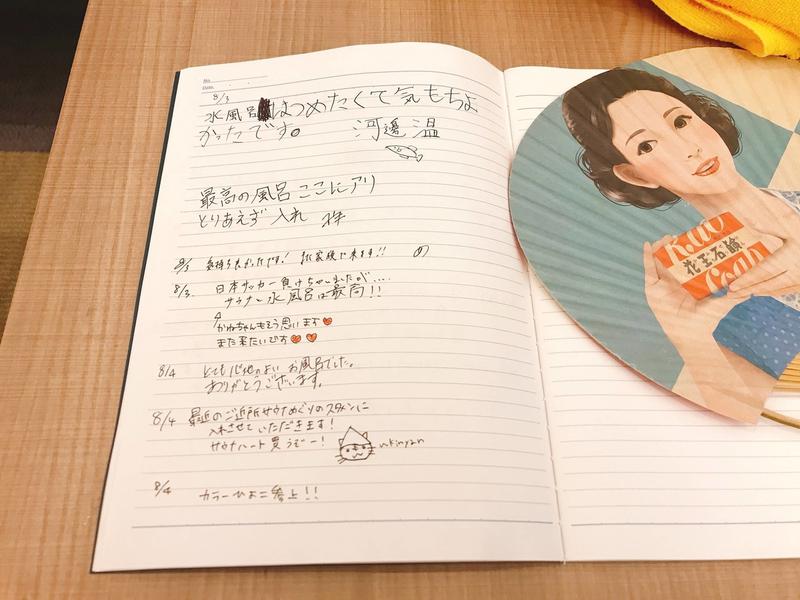 No.
Date.
8/3
水風呂はつめたくて気もちよ
かったです。 河邊 温
最高の風呂 ここにアリ
とりあえず 入れ
8/3 気持ちよかったです! 次は家族で来ます!! め
8/3. 日本サッカー負けちゃいましたが....
サウナと水風呂は最高!!
かねちゃんもそう思います
また来たいです
8/4 とても心地のよい お風呂でした。
ありがとうございます。
8/4 最近のご近所サウナめぐりのスタメンに
入れさせていただきます!
サウナハット買うぞー! nkinyan
8/4 カラーひよこ参上!!
Kao
花王石鹸
Soap